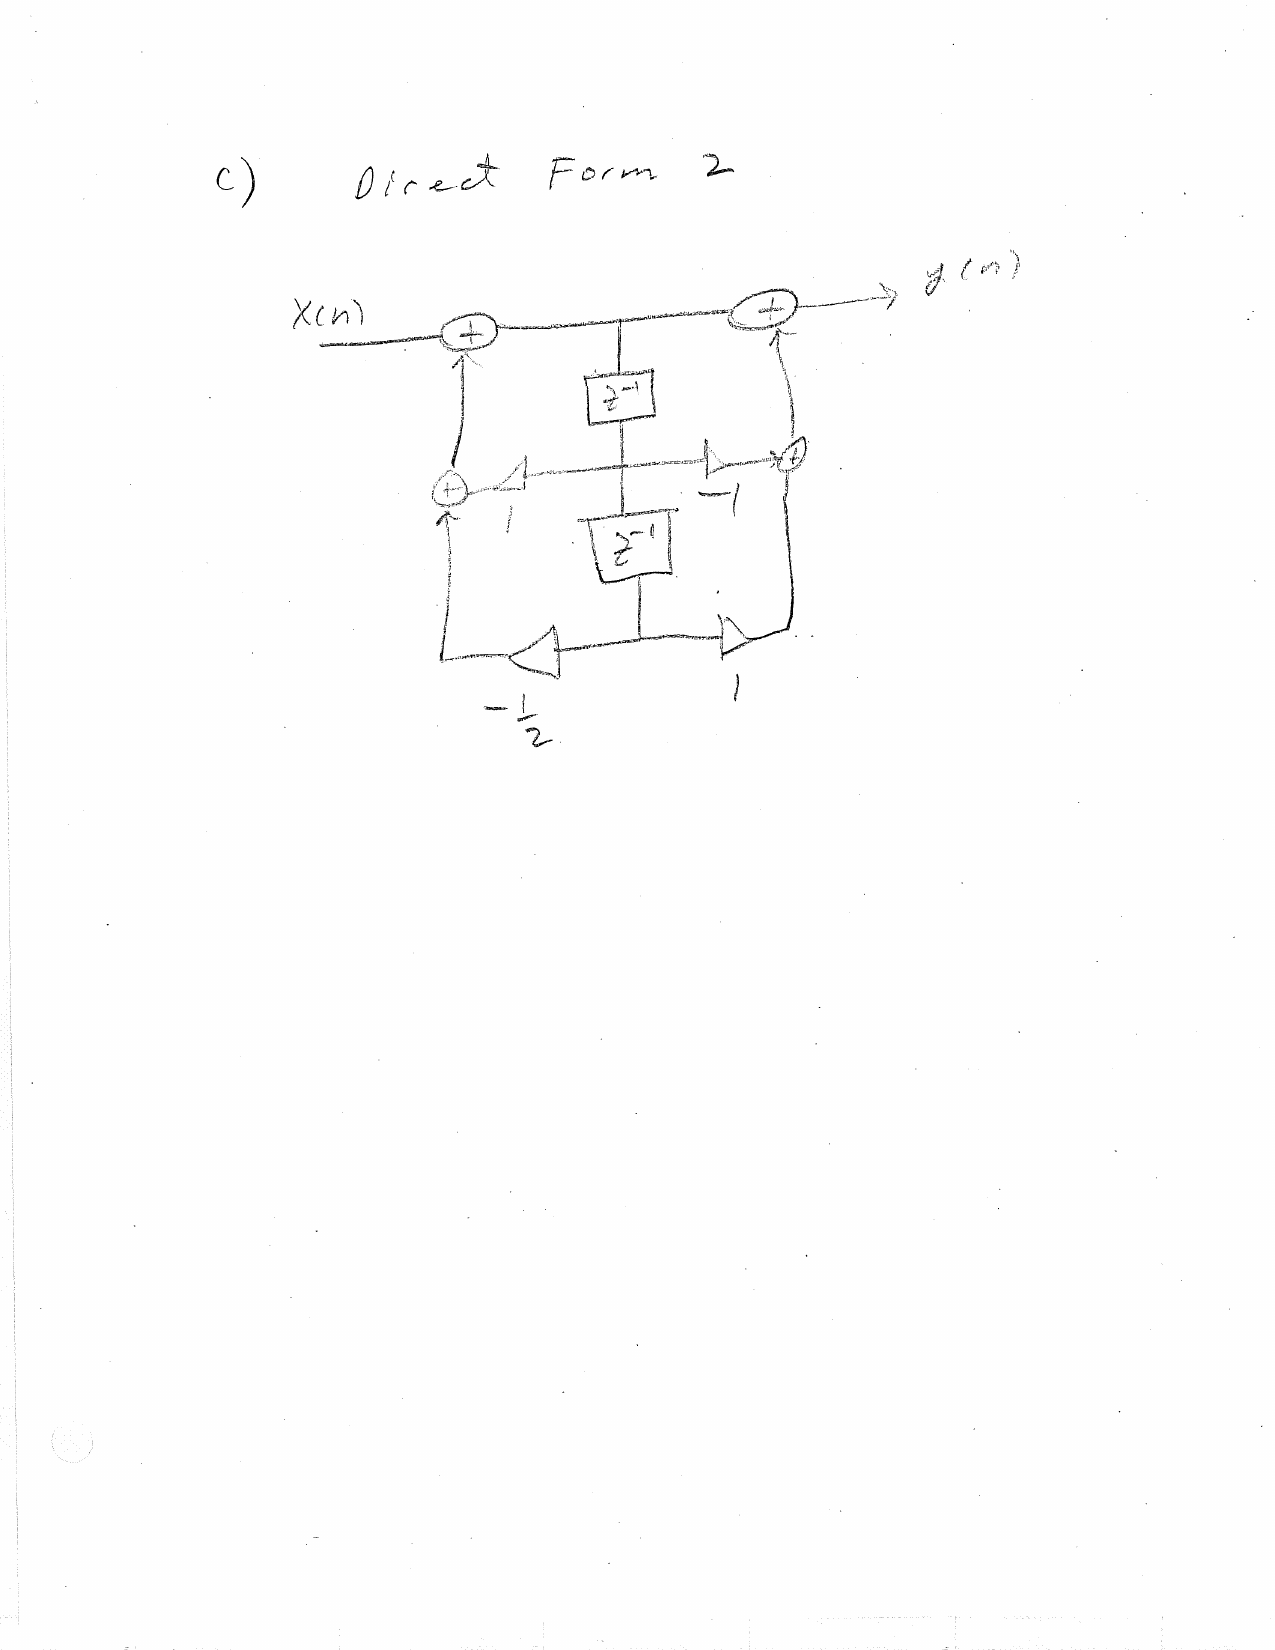 c) Direct Form 2
y(n)
X(n)
+ +
z⁻¹
+ +
1 -1
z⁻¹
-1/2 1